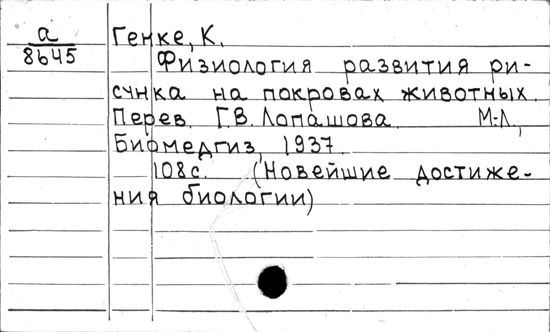 а
8645
Генке, К.
Физиология развития ри-
сунка на покровах животных.
Перев. Г.В. Лопашова. М-Л.,
Биомедгиз, 1937.
108с. (Новейшие достиже-
ния биологии)